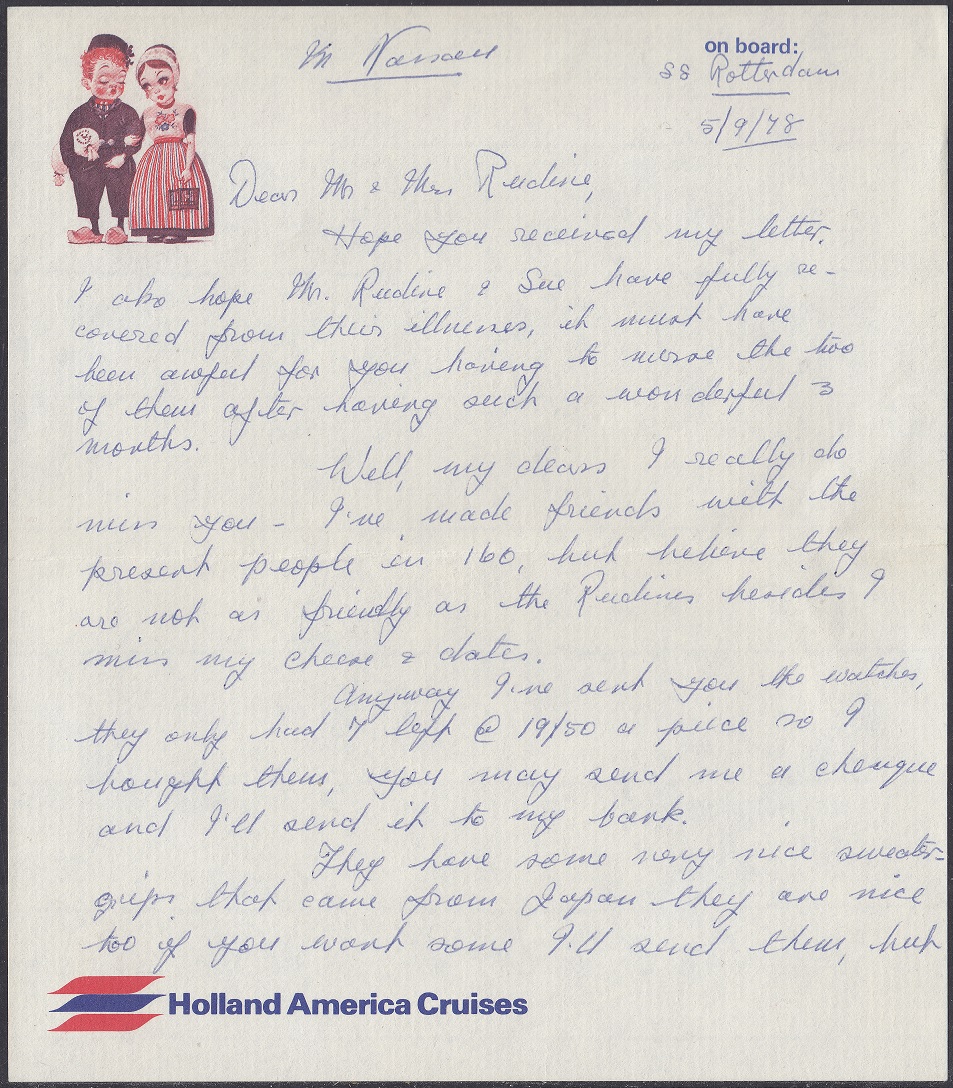 In Nassau
on board:
SS Rotterdam
5/9/78
Dear Mr & Mrs Rudine,
Hope you received my letter.
I also hope Mr. Rudine & Sue have fully re-
covered from their illnesses, it must have
been awful for you having to nurse the two
of them after having such a wonderful 3
months.
Well, my dears I really do
miss you - I've made friends with the
present people in 160, but believe they
are not as friendly as the Rudines besides I
miss my cheese & dates.
Anyway I've sent you the watches,
they only had 7 left @ 19/50 a piece so I
bought them, you may send me a cheuque
and I'll send it to my bank.
They have some very nice sweater-
grips that came from Japan they are nice
too if you want some I'll send them, but
Holland America Cruises